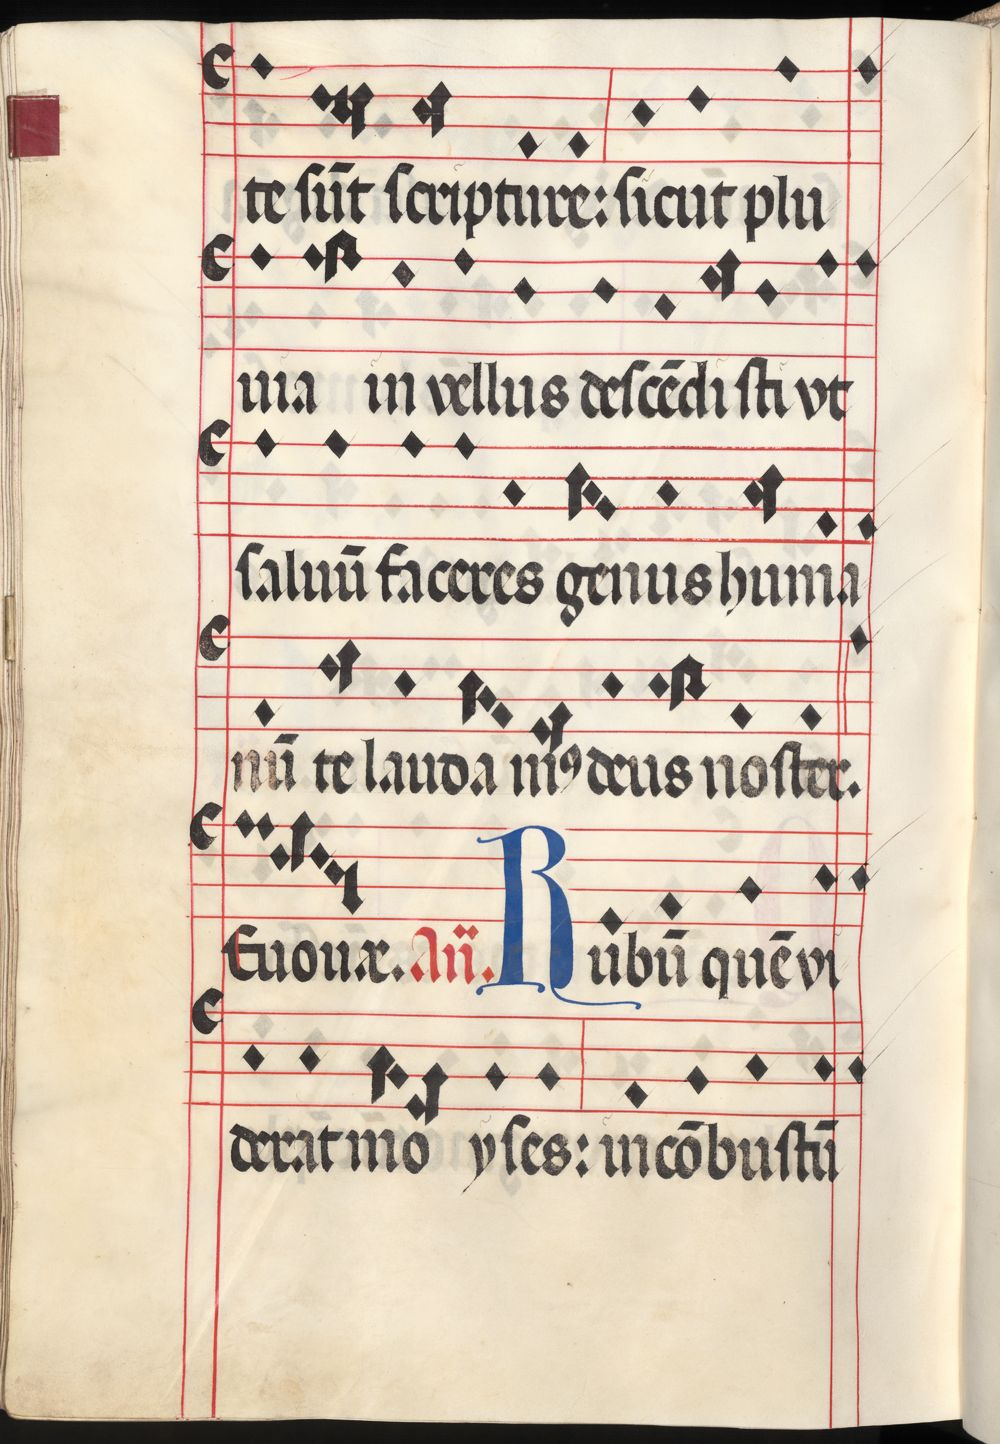 te sūt scripture: sicut plu
uia in vellus descēdi sti vt
saluū faceres genus huma
nū te lauda mꝰ deus noster.
Euouae. Añ. Rubū quē vi
derat mo yses: incōbustū